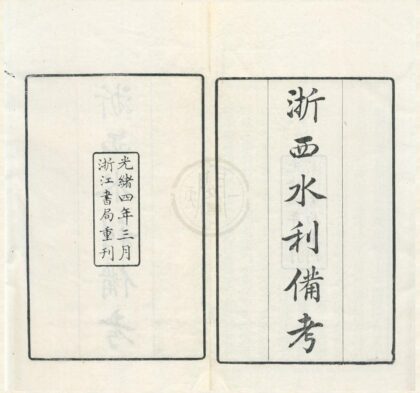 浙西水利備考
光緒四年三月
浙江書局重刊